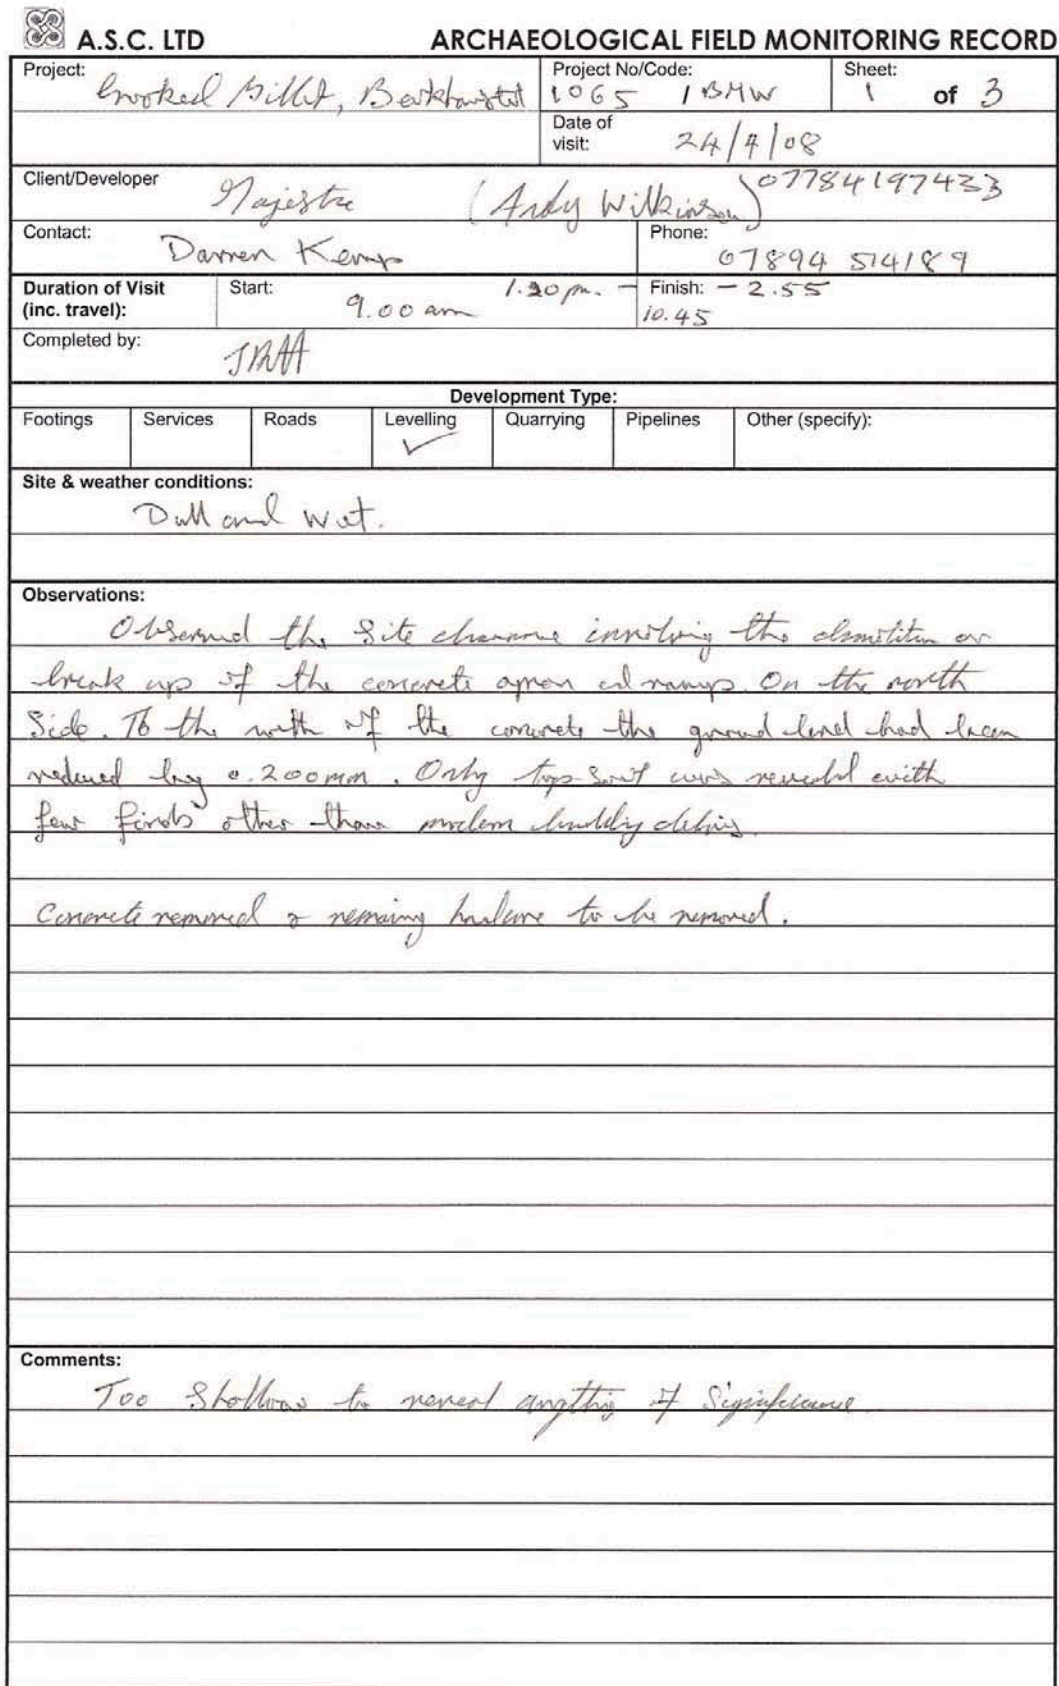 A.S.C. LTD ARCHAEOLOGICAL FIELD MONITORING RECORD
Project: Crooked Billet, Berkhamsted Project No/Code: 1065 / BMW Sheet: 1 of 3
Date of visit: 24/4/08
Client/Developer (Andy Wilkinson) 07784197433
Contact: Darren Kemp Phone: 07894 514189
Duration of Visit (inc. travel): Start: 9.00 am 1.20 pm. – Finish: – 2.55
10.45
Completed by:
Development Type:
Footings Services Roads Levelling ✓ Quarrying Pipelines Other (specify):
Site & weather conditions:
Dull and Wet.
Observations:
Observed the site clearance involving the demolition or
break up of the concrete apron and ramps. On the north
Side. To the north of the concrete the ground level had been
reduced by 0.200mm. Only top-soil was revealed with
few finds other than modern building debris.
Concrete removed & remaining to be removed.
Comments:
Too Shallow to reveal anything of Significance